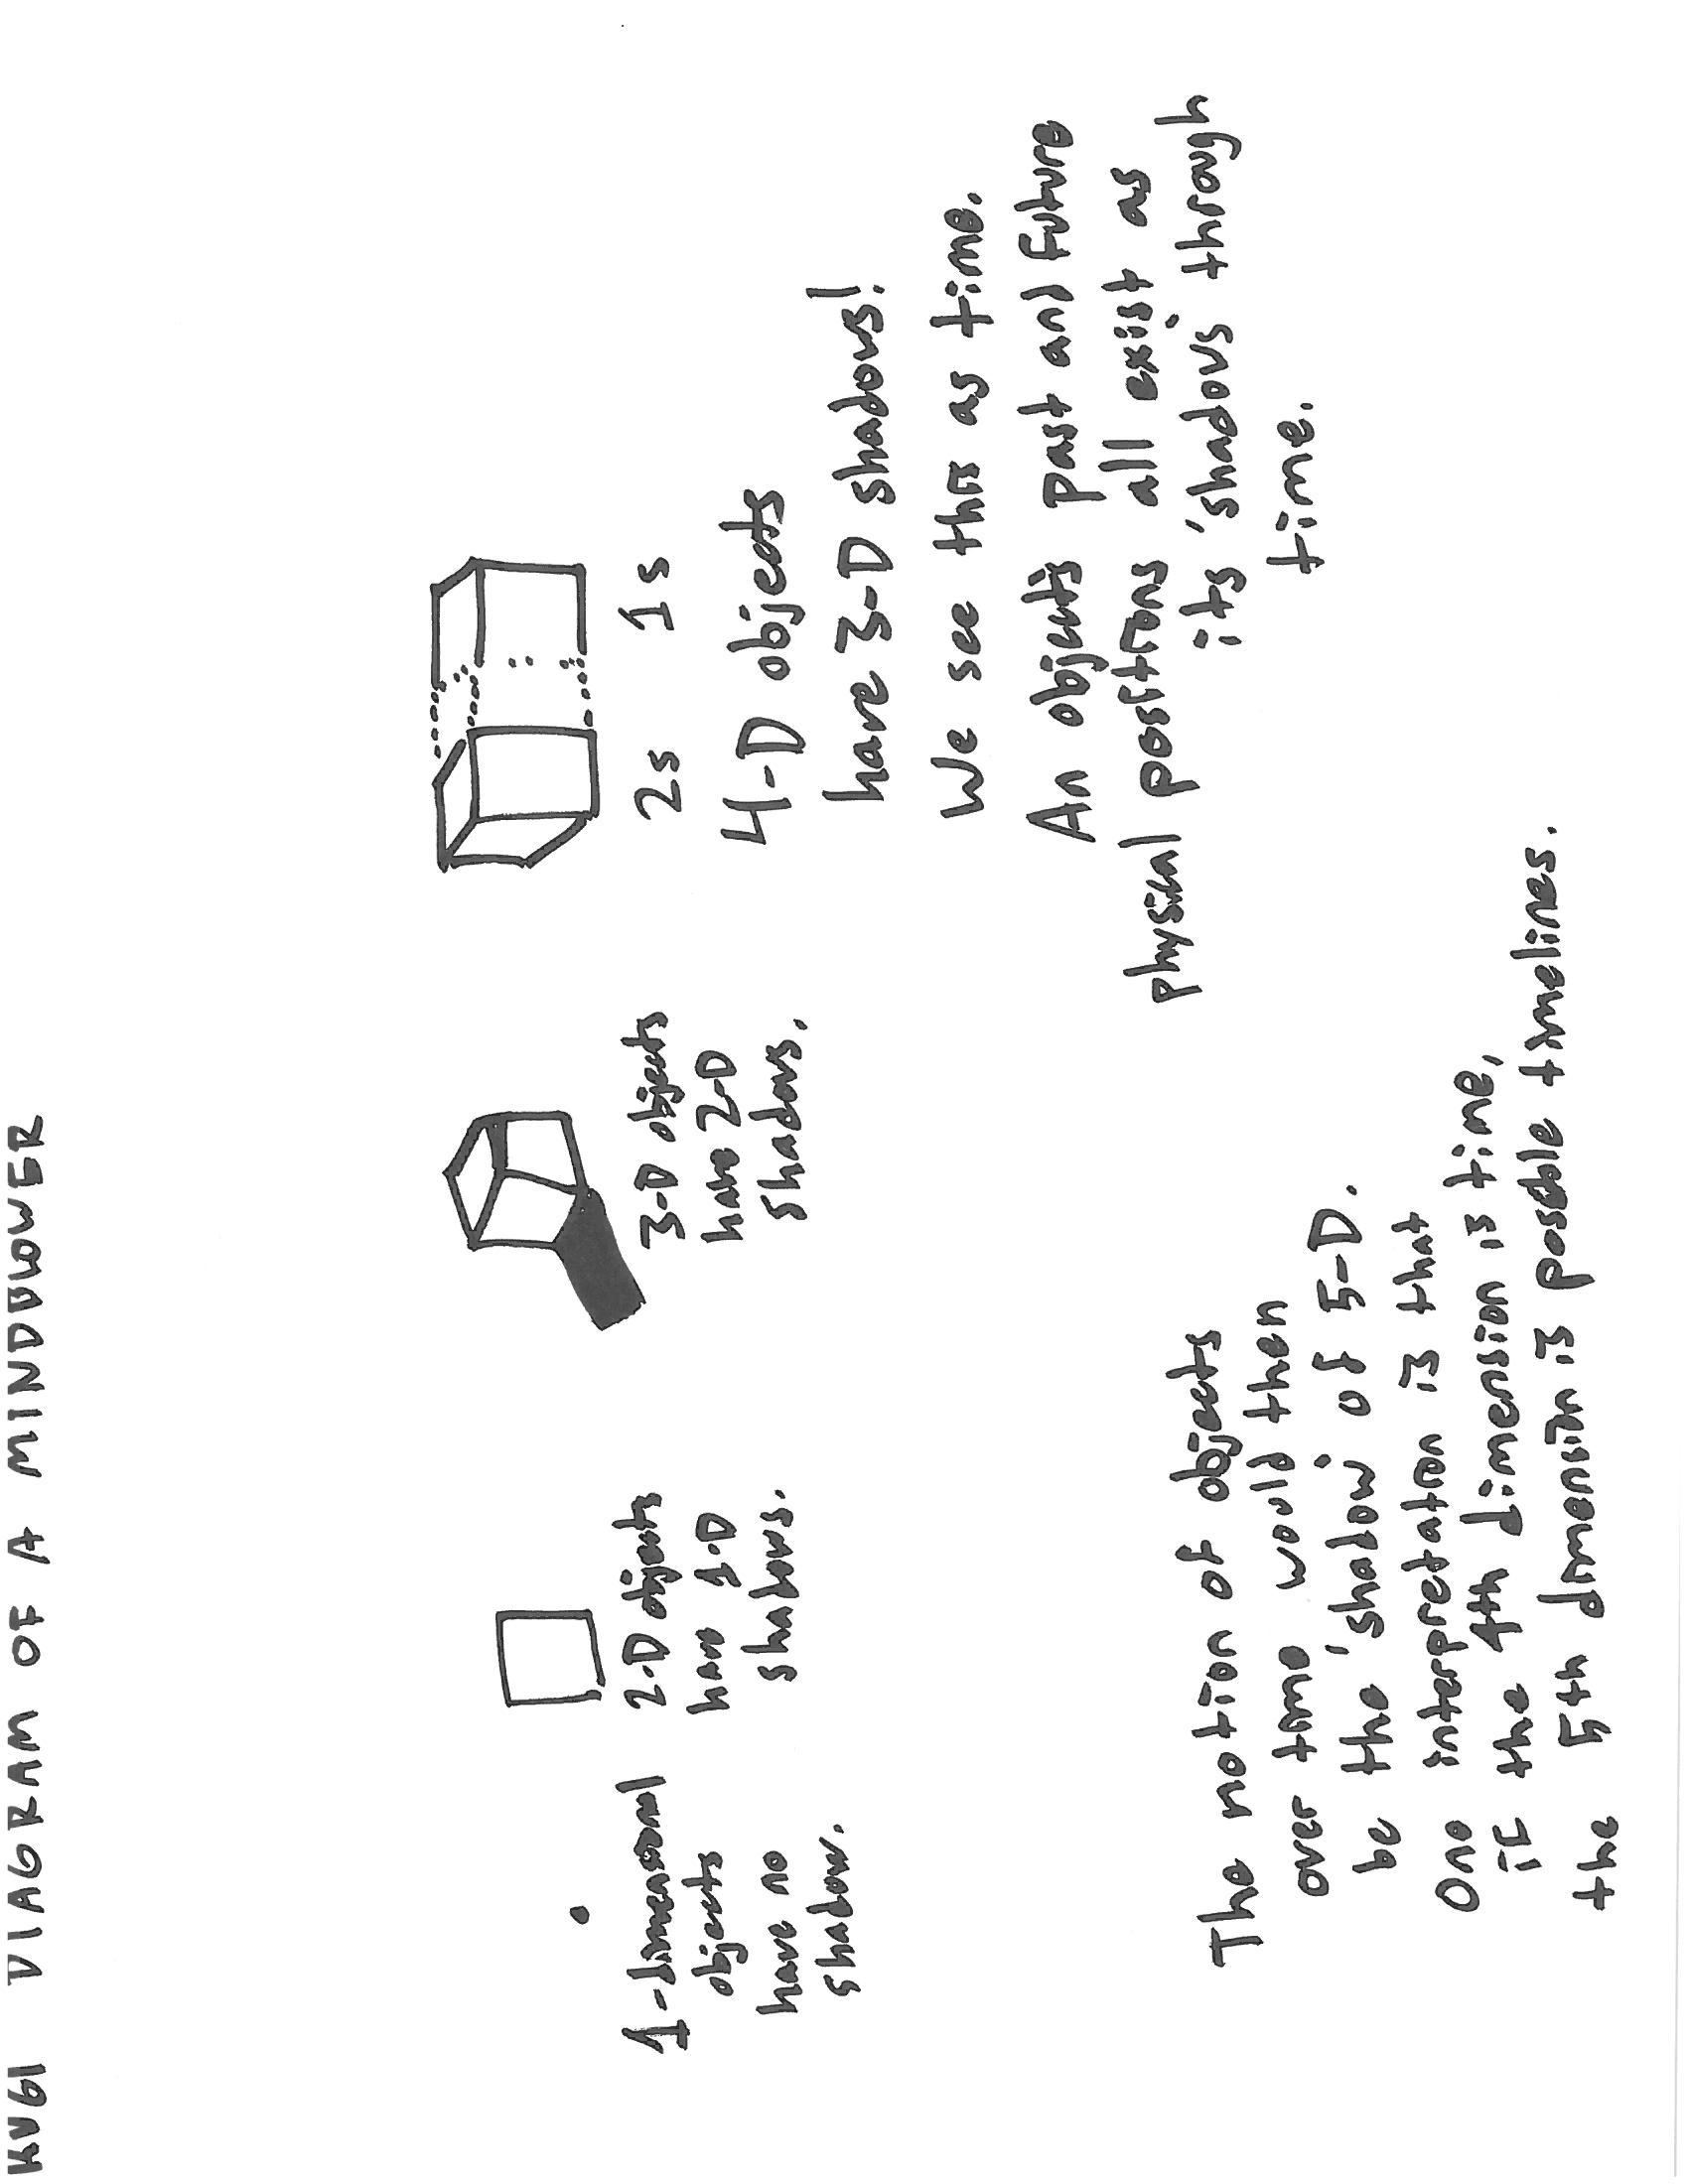 DIAGRAM OF A MINDBLOWER
1-dimensional
objects
have no
shadow.
2-D objects
have 1-D
shadows.
3-D objects
have 2-D
shadows.
2s 1s
4-D objects
have 3-D shadows!
We see this as time.
An objects past and future
physical positions all exist as
its 'shadows' through
time.
The notion of objects
over time would then
be the 'shadow' of 5-D.
One interpretation is that
if the 4th dimension is time,
the 5th dimension is possible timelines.